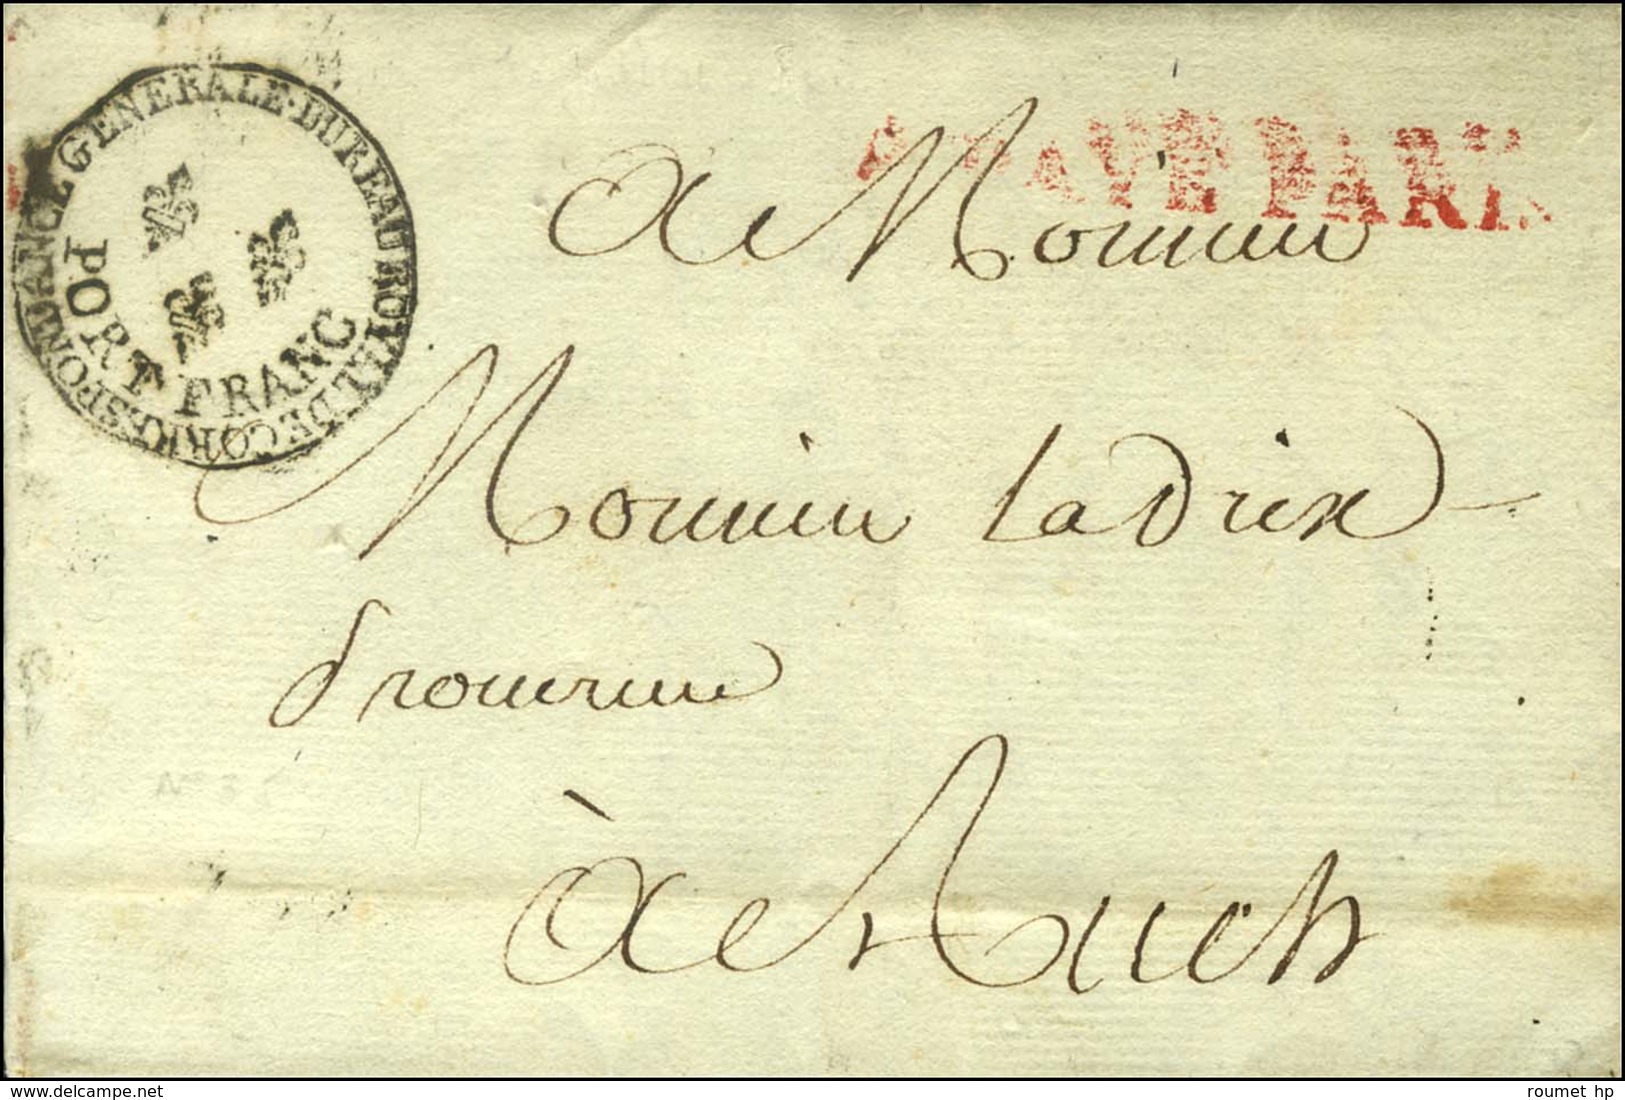 BUREAU ROYAL DE CORRESPONDANCE GENERALE.
PORT FRANC
PAYÉ PARIS
A Monsieur
Monsieur Ladrix
à Auch
www.delcampe.net
roumet hp